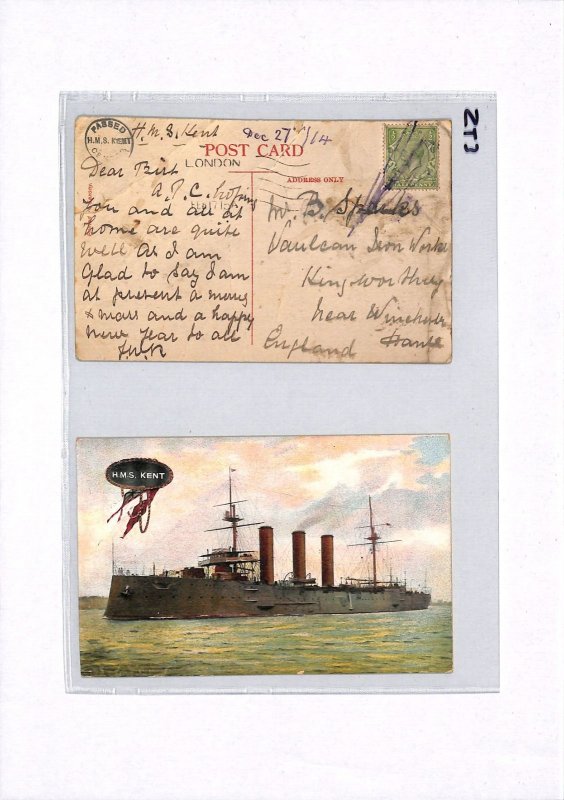 ZTJ
PASSED
H.M.S. KENT
H.M.S. Kent Dec 27th/14
POST CARD
LONDON
ADDRESS ONLY
Dear Bist
A.P.C. hoping
you and all at
home are quite
well As I am
Glad to say I am
at present a merry
Xmas and a happy
new year to all
Mr. B. Sparkes
Vaulcan Iron Works
Kingsworthey
near Winchester
England Hants
H.M.S. KENT